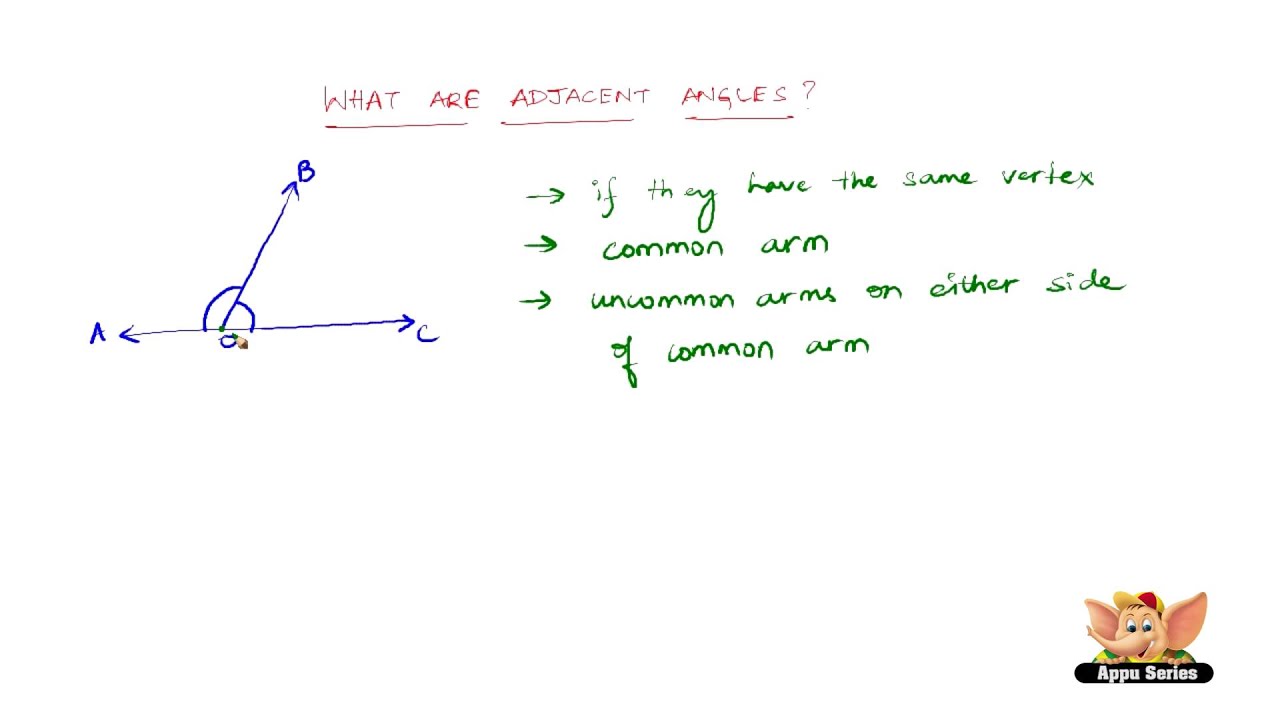 WHAT ARE ADJACENT ANGLES?
B
→ if they have the same vertex
→ common arm
→ uncommon arms on either side
of common arm
A
O
C
Appu Series